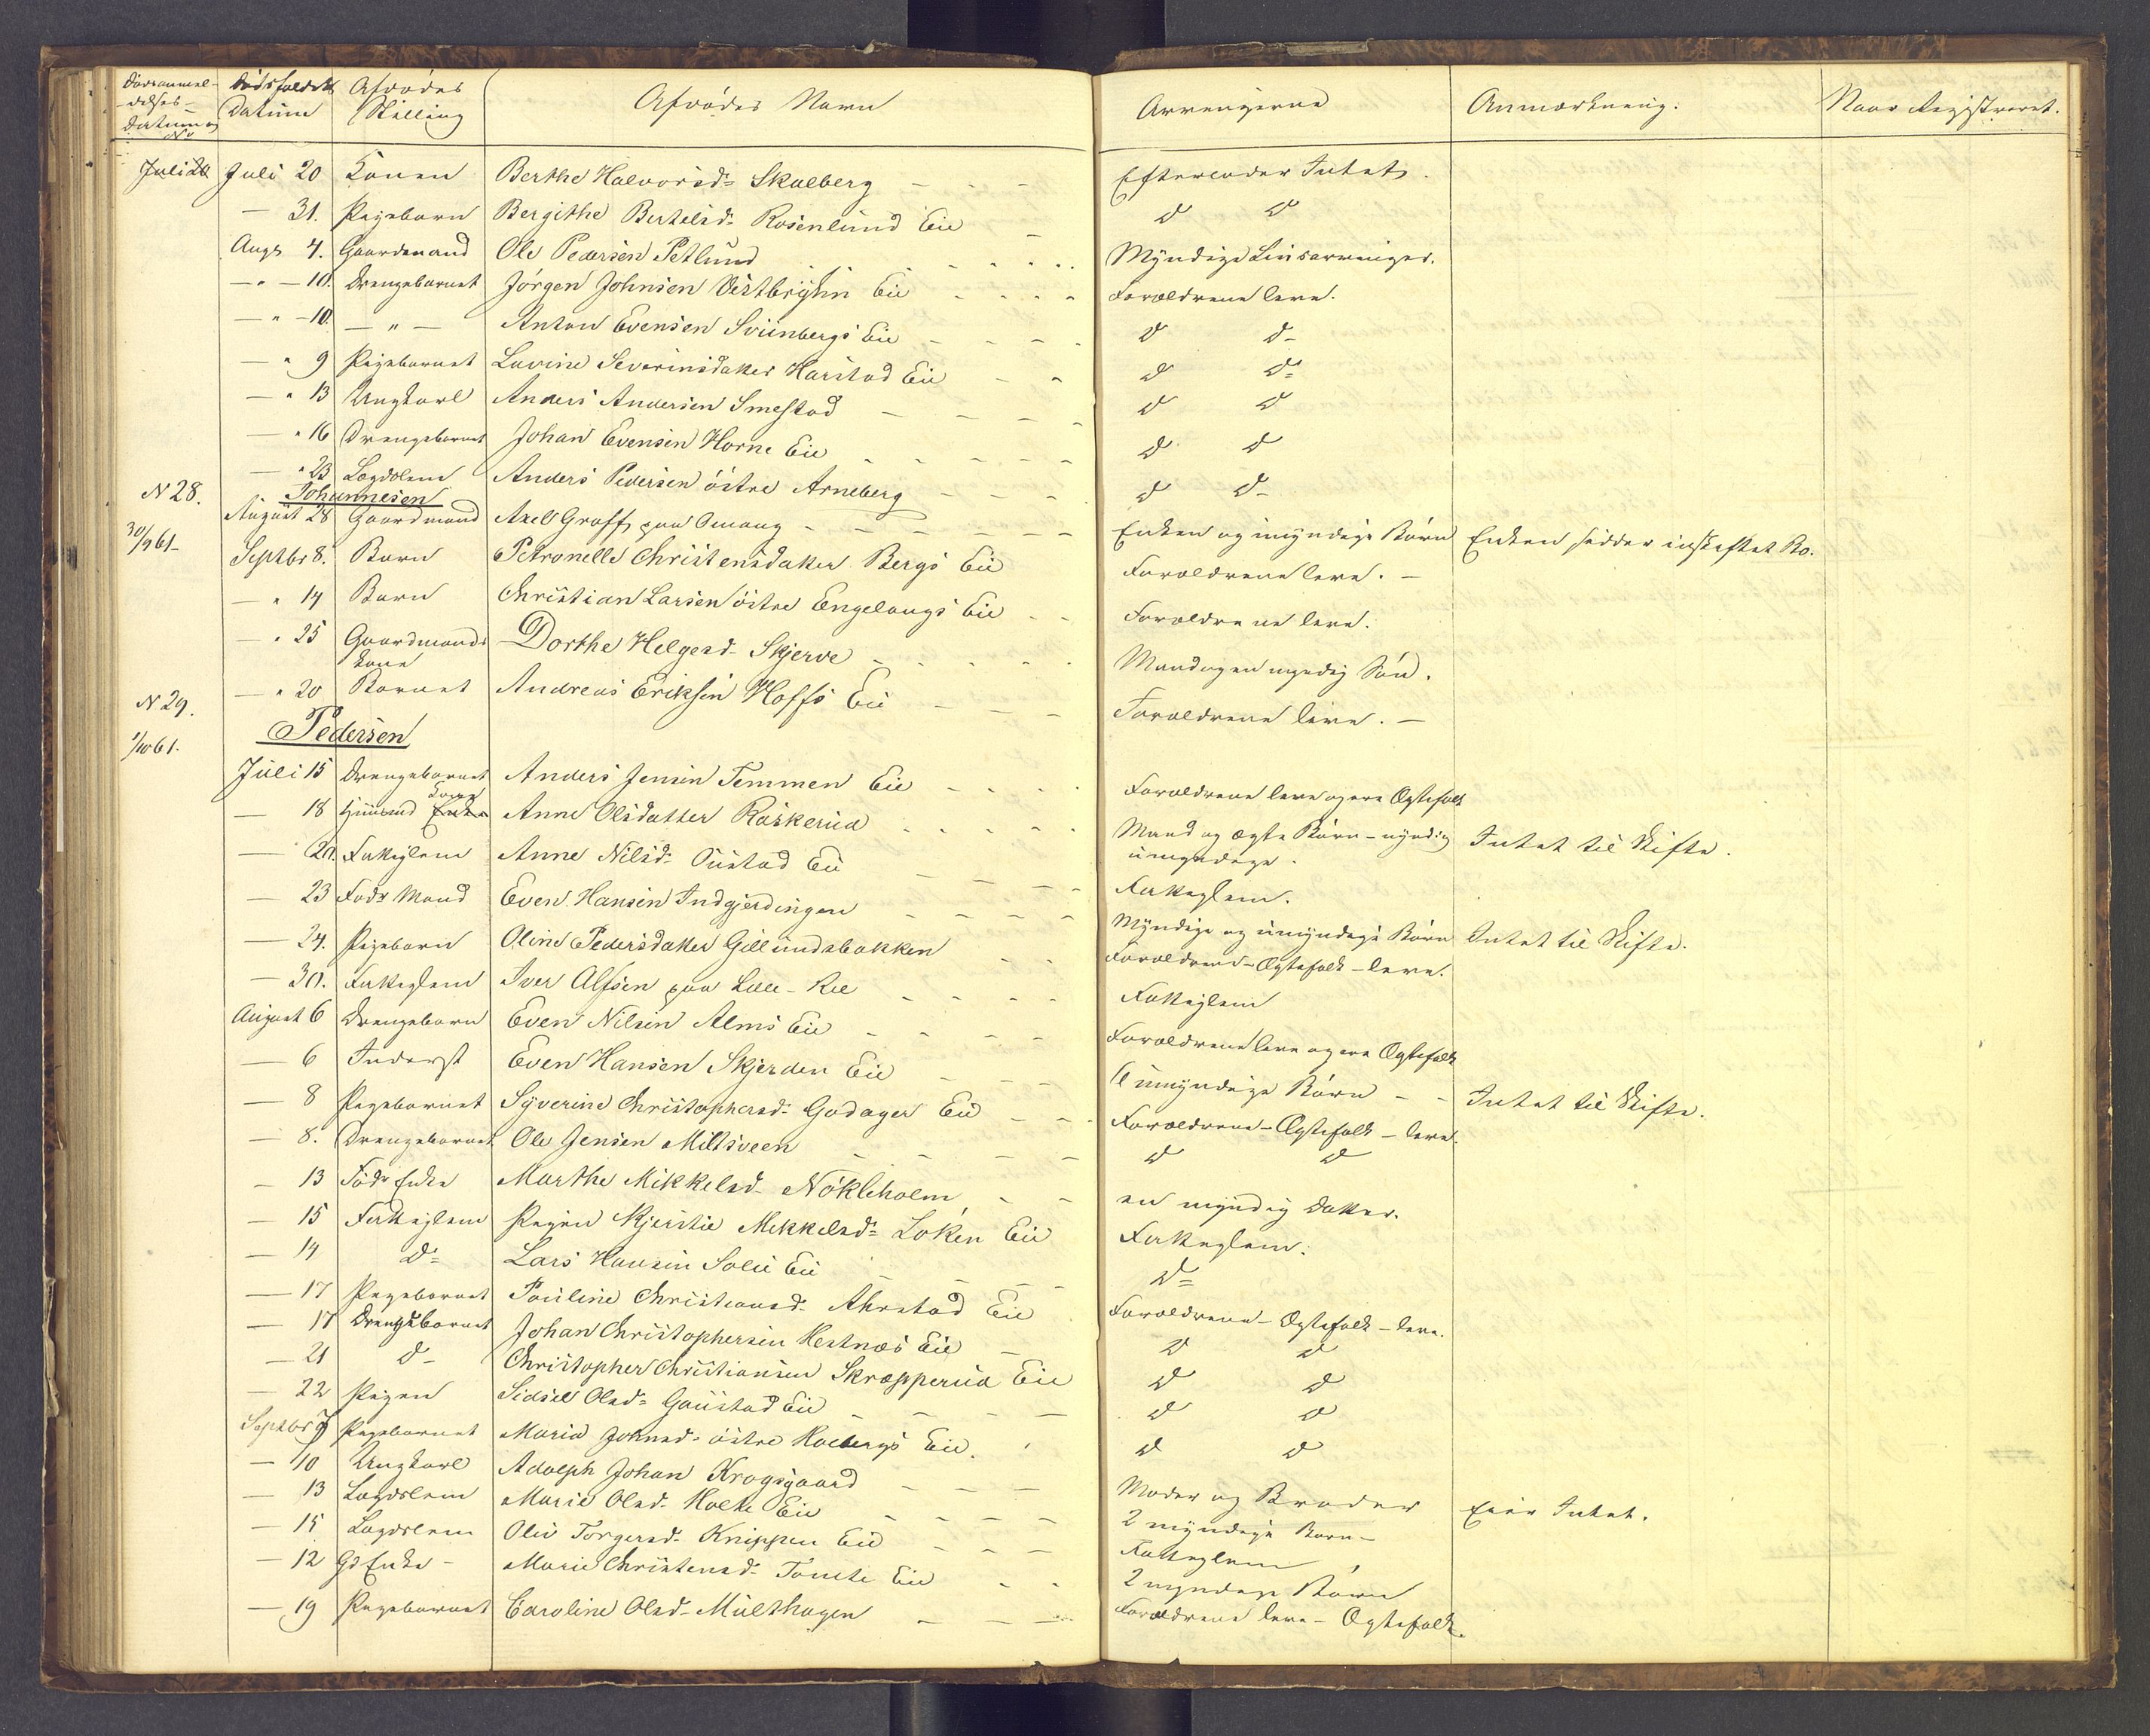 Dødsanmel-
-delses-
Datum og
No
Dødsfaldets
Datum
Afdødes
Stilling
Afdødes Navn
Arvingerne
Anmærkning.
Naar Registreret.
Juli 20 Juli 20 Konen Berthe Halvorsd= Skulberg - - - Efterlader Intet.
— 31. Pigebarn Bergithe Bertelsd- Rosenlund Eie - D D
Augs 4. Gaardmand Ole Pedersen Petlund - - - - Myndige Livsarvinger.
— " — 10. Drengebarnet Jørgen Johnsen Eie - - - - Forældrene leve.
— " — 10. — " — Anton Evensen Eie - - - - D D-
— " 9 Pigebarnet Lovine Severinsdatter Harstad Eie - - D D=
— " 13 Ungkarl Anders Andersen Smestad - - - - D D
— " 16 Drengebarnet Johan Evensen Horne Eie - - - - - D D
— " 23 Lægdslem Anders Pedersen østre Arneberg - - - D D-
N 28. Johannesen
30/9 61- August 28 Gaardmand Axel Graff paa Omang - - - - - - Enken og umyndige Børn Enken sidder i uskiftet Bo.
Septbr 8. Barn Petronelle Christensdatter Bergs Eie Forældrene leve. -
— " 14 Barn Christian Larsen østre Engelaugs Eie - - Forældrene leve.
— " 25 Gaardmands
Kone Dorthe Helgesd- Skjerve - - - - - Mand og en myndig Søn.
— " 20 Barnet Andreas Eriksen Hoffs Eie - - - Forældrene leve. -
N 29.
1/10 61. Pedersen
Juli 15 Drengebarnet Anders Jensen Temmen Eie - - - - Forældrene leve og ere Ægtefolk
— 18 Huusmd Enke Kone Anne Olsdatter Raskerud - - - - - Mand og ægte Børn - myndig
umyndige. Intet til Skifte.
— 20. Fattiglem Anne Nilsd- Oustad Eie - - - - Fattiglem.
— 23 Føder Mand Even Hansen Indgjerdingen - - - - Myndige og umyndige Børn Intet til Skifte.
— 24. Pigebarn Oline Pedersdatter Gillundsbakken - - Forældrene - Ægtefolk - leve.
— 30. Fattiglem Iver Alfsen paa Lille-Kee - - - - Fattiglem
August 6 Drengebarn Even Nilsen Alms Eie - - - - - Forældrene leve og ere Ægtefolk
— 6 Inderst Even Hansen Skjerden Eie - - - umyndige Børn - - Intet til Skifte.
— 8 Pigebarnet Syverine Christophersd- Godager Eie - - - Forældrene - Ægtefolk - leve.
— 8. Drengebarnet Ole Jensen Miltsveen - - - - D D
— 13 Føder Enke Marthe Mikkelsd- Nökleholm - - en myndig Datter.
— 15 Fattiglem Pigen Kjerstie Mekkelsd= Loken Eie Fattiglem.
— 14 D= Lars Hansen Solie Eie - - - - D=
— 17 Pigebarnet Pauline Christiansd- Ahrstad Eie Forældrene - Ægtefolk - leve.
— 17 Drengebarnet Johan Christophersen Hestnæs Eie - D D
— 21 D- Christopher Christiansen Skrapperud Eie D D
— 22 Pigen Sidsel Olsd= Gaustad Eie - - - - D D
Septbr 7 Pigebarnet Maria Johnsd= østre Eie. - D D
— 10 Ungkarl Adolph Johan Krogsgaard - - - - Moder og Broder Eier Intet.
— 13 Lægdslem Marie Olsd- Holte Eie - - - - 2 myndige Børn -
— 15 Lægdslem Olie Torgersd- Knippen Eie - - - Fattiglem
— 12 Gd Enke - Marie Christensd- Tomte Eie - - 2 myndige Børn
— 19 Pigebarnet Caroline Olsd- Multhagen - - - Forældrene leve - Ægtefolk.